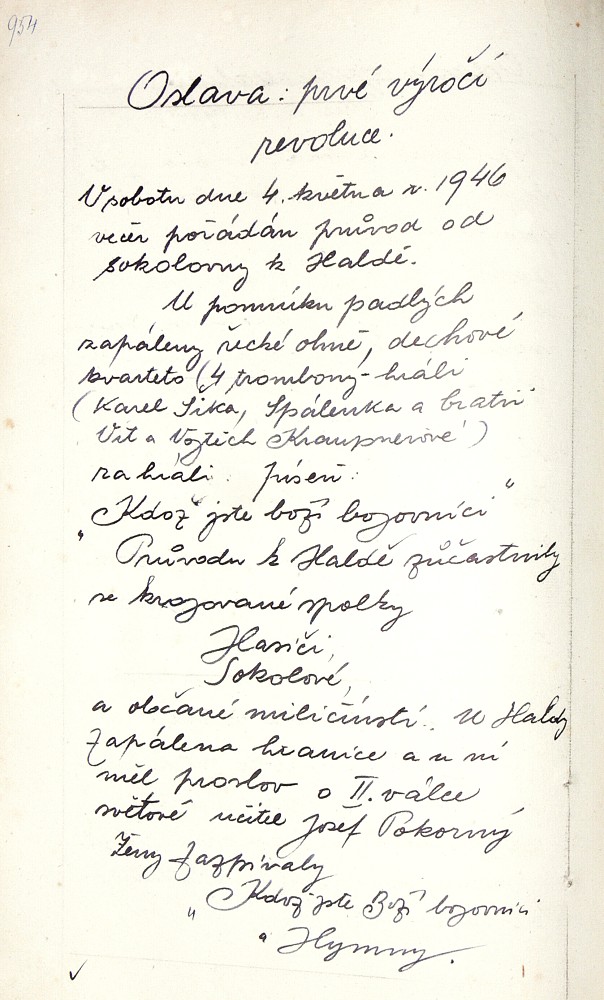 954
Oslava: prvé výročí
revoluce.
V sobotu dne 4. května r. 1946
večer pořádán průvod od
sokolovny k Haldě.
U pomníku padlých
zapáleny řecké ohně, dechové
kvarteto (4 trombony - hráli
(Karel Šika, Spálenka a bratři
Vít a Vojtěch Kraupnerové)
zahráli: píseň:
„Kdož jste boží bojovníci"
Průvodu k Haldě zúčastnily
se krojované spolky
Hasiči,
Sokolové,
a občané miličínští. U Haldy
zapálena hranice a u ní
měl proslov o II. válce
světové učitel Josef Pokorný
Ženy zazpívaly
„Kdož jste Boží bojovníci
a Hymny.